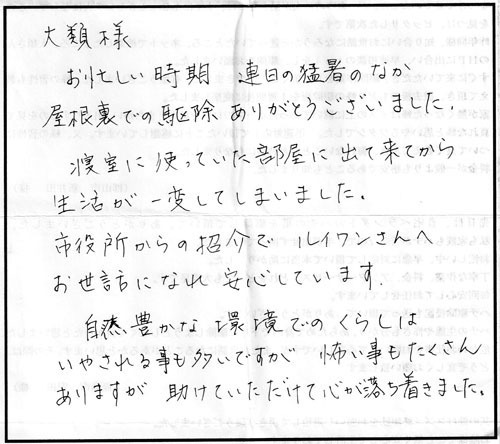 大類様
お忙しい時期 連日の猛暑のなか
屋根裏での駆除ありがとうございました。
寝室に使っていた部屋に出て来てから
生活が一変してしまいました。
市役所からの紹介でルイワンさんへ
お世話になれ安心しています。
自然豊かな環境でのくらしは
いやされる事も多いですが 怖い事もたくさん
ありますが 助けていただけて心が落ち着きました。